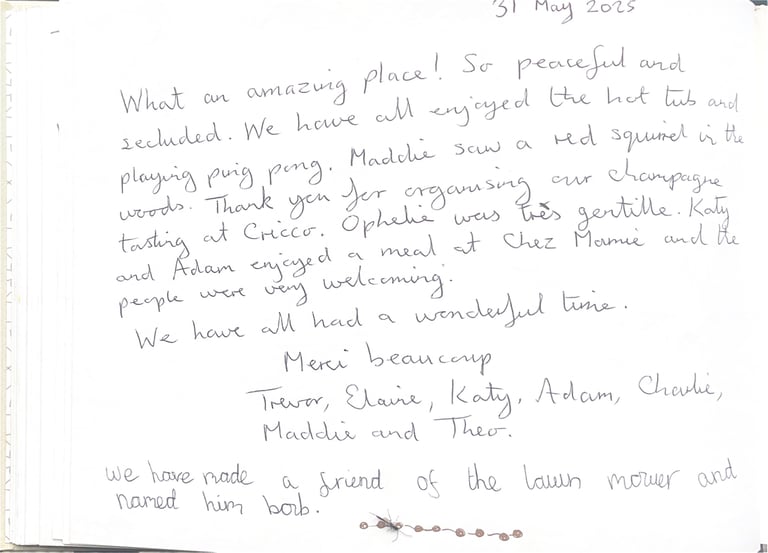 31 May 2025
What an amazing place! So peaceful and
secluded. We have all enjoyed the hot tub and
playing ping pong. Maddie saw a red squirrel in the
woods. Thank you for organising our champagne
tasting at Cricco. Ophelie was très gentille. Katy
and Adam enjoyed a meal at Chez Mamie and the
people were very welcoming.
We have all had a wonderful time.
Merci beaucoup
Trevor, Elaine, Katy, Adam, Charlie,
Maddie and Theo.
we have made a friend of the lawn mower and
named him borb.